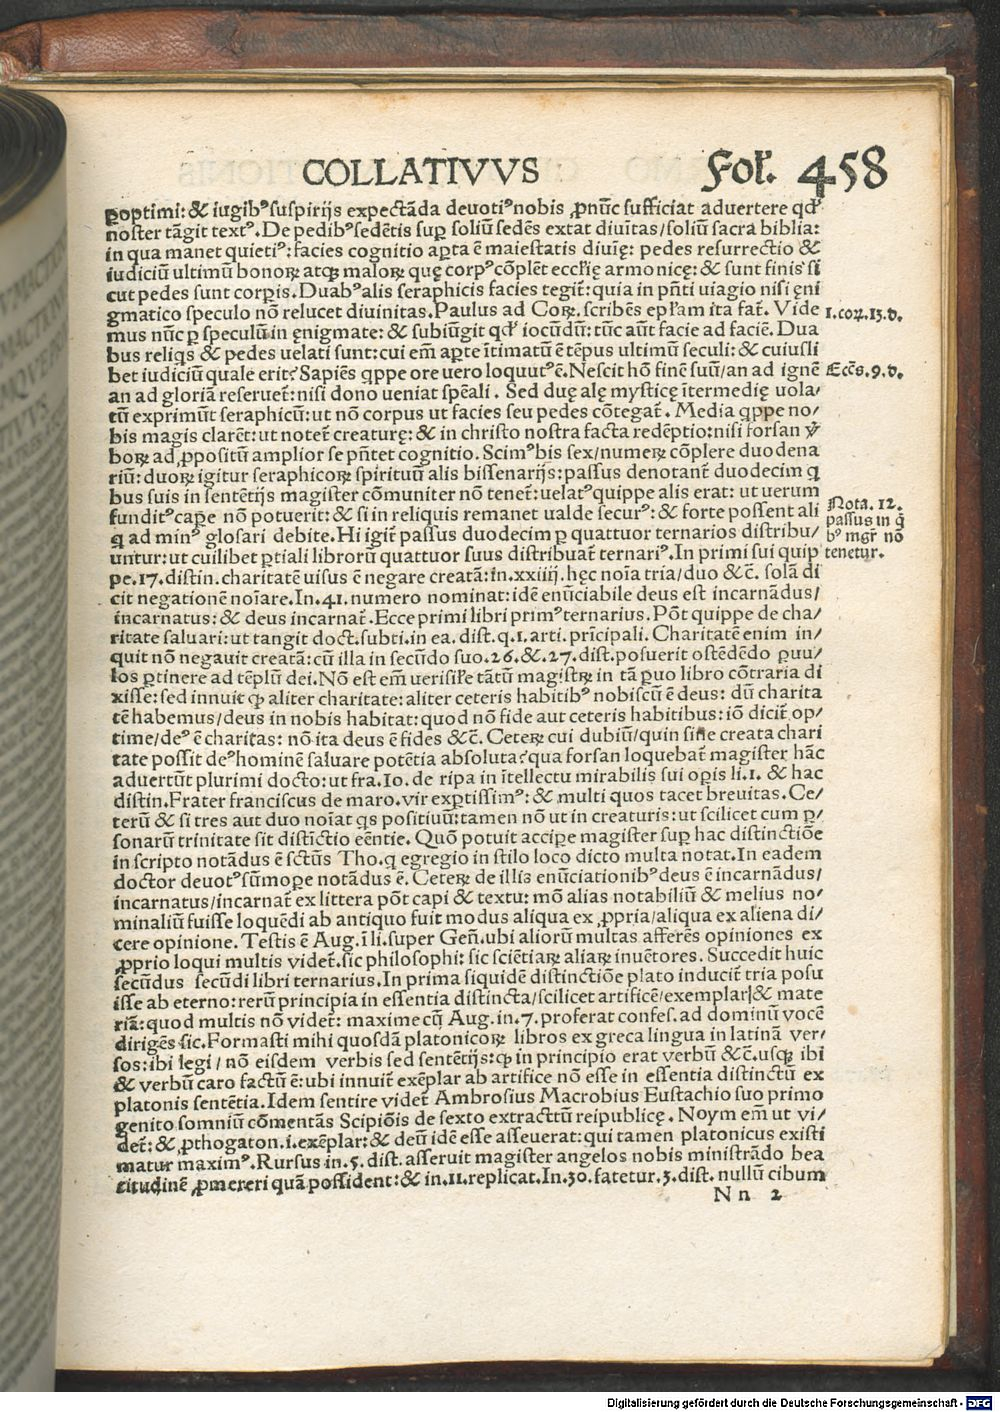 COLLATIVVS Fol. 458
poptimi: & iugibꝰ suspirijs expectãda deuotiꝰ nobis ꝓnũc sufficiat aduertere qđ
noster tãgit textꝰ. De pedibꝰ sedẽtis suꝑ soliũ sedẽs extat diuitas/soliũ sacra biblia:
in qua manet quietiꝰ: facies cognitio aꝑta ẽ maiestatis diuię: pedes resurrectio &
iudiciũ ultimũ bonoꝝ atqꝫ maloꝝ quę corpꝰ cõplẽt eccłię armonicę: & sunt finis si
cut pedes sunt corꝑis. Duabꝰ alis seraphicis facies tegit̃: quia in pñti uiagio nisi ęni
gmatico speculo nõ relucet diuinitas. Paulus ad Coꝝ. scribẽs epłam ita fat̃. Vide
mus nũc ꝑ speculũ in ęnigmate: & subiũgit qđ iocũdũ: tũc aũt facie ad faciẽ. Dua
bus reliqs & pedes uelati sunt: cui em̃ aꝑte ĩtimatũ ẽ tẽpus ultimũ seculi: & cuiusli
bet iudiciũ quale erit? Sapiẽs qppe ore uero loquutꝰ ẽ. Nescit hõ finẽ suũ/an ad ignẽ
an ad gloriã reseruet̃: nisi dono ueniat spẽali. Sed duę alę mysticę ĩtermedię uola/
tũ exprimũt seraphicũ: ut nõ corpus ut facies seu pedes cõtegat̃. Media qppe no/
bis magis clarẽt: ut notet̃ creaturę: & in christo nostra facta redẽptio: nisi forsan ỹ
boꝝ ad ꝓpositũ amplior se pñtet cognitio. Scimꝰ bis sex/numeꝝ cõplere duodena
riũ: duoꝝ igitur seraphicoꝝ spirituũ alis bissenarijs: passus denotant̃ duodecim q
bus suis in sentẽtijs magister cõmuniter nõ tenet̃: uelatꝰ quippe alis erat: ut uerum
funditꝰ caꝑe nõ potuerit: & si in reliquis remanet ualde securꝰ: & forte possent ali
q ad minꝰ glosari debite. Hi igit̃ passus duodecim ꝑ quattuor ternarios distribu/
untur: ut cuilibet ꝑtiali librorũ quattuor suus distribuat̃ ternariꝰ. In primi sui quip
pe. 17. distin. charitatẽ uisus ẽ negare creatã: in. xxiiij. hęc noĩa tria/duo &c̃. solã di
cit negationẽ noĩare. In. 41. numero nominat: idẽ enũciabile deus est incarnãdus/
incarnatus: & deus incarnat̃. Ecce primi libri primꝰ ternarius. Põt quippe de cha/
ritate saluari: ut tangit doct. subti. in ea. dist. q. 1. arti. prĩcipali. Charitatẽ enim in/
quit nõ negauit creatã: cũ illa in secũdo suo. 26. &. 27. dist. posuerit ostẽdẽdo ꝑuu/
los ꝑtinere ad tẽplũ dei. Nõ est em̃ uerisiłe tãtũ magistꝝ in tã ꝑuo libro cõtraria di
xisse: sed innuit ꝙ aliter charitate: aliter ceteris habitibꝰ nobiscũ ẽ deus: dũ charita
tẽ habemus/deus in nobis habitat: quod nõ fide aut ceteris habitibus: iõ dicit̃ op/
time/deꝰ ẽ charitas: nõ ita deus ẽ fides &c̃. Ceteꝝ cui dubiũ/quin sine creata chari
tate possit deꝰ hominẽ saluare potẽtia absoluta? qua forsan loquebat̃ magister hãc
aduertũt plurimi docto: ut fra. Io. de ripa in ĩtellectu mirabilis sui oꝑis li. 1. & hac
distin. Frater franciscus de maro. vir exꝑtissimꝰ: & multi quos tacet breuitas. Ce/
terũ & si tres aut duo noĩat qs positiuũ: tamen nõ ut in creaturis: ut scilicet cum ꝑ/
sonarũ trinitate sit distĩctio eẽntie. Quõ potuit acciꝑe magister suꝑ hac distinctiõe
in scripto notãdus ẽ sctũs Tho. q egregio in stilo loco dicto multa notat. In eadem
doctor deuotꝰ sũmoꝑe notãdus ẽ. Ceteꝝ de illis enũciationibꝰ deus ẽ incarnãdus/
incarnatus/incarnat̃ ex littera põt capi & textu: mõ alias notabiliũ & melius no/
minaliũ fuisse loquẽdi ab antiquo fuit modus aliqua ex ꝓpria/aliqua ex aliena di/
cere opinione. Testis ẽ Aug. ĩ li. super Geñ. ubi aliorũ multas afferẽs opiniones ex
ꝓprio loqui multis videt̃. sic philosophi: sic sciẽtiaꝝ aliaꝝ inuẽtores. Succedit huic
secũdus secũdi libri ternarius. In prima siquidẽ distinctiõe plato inducit̃ tria posu
isse ab eterno: rerũ principia in essentia distincta/scilicet artificẽ/exemplar|& mate
riã: quod multis nõ videt̃: maxime cũ Aug. in. 7. proferat confes. ad dominũ vocẽ
dirigẽs sic. Formasti mihi quosdã platonicoꝝ libros ex greca lingua in latinã ver/
sos: ibi legi/nõ eisdem verbis sed sentẽtijs: ꝙ in principio erat verbũ &c̃. usqꝫ ibi
& verbũ caro factũ ẽ: ubi innuit̃ exẽplar ab artifice nõ esse in essentia distinctũ ex
platonis sentẽtia. Idem sentire videt̃ Ambrosius Macrobius Eustachio suo primo
genito somniũ cõmentãs Scipiõis de sexto extracttũ reipublicę. Noym em̃ ut vi/
det̃: & ꝓthogaton. i. exẽplar: & deũ idẽ esse asseuerat: qui tamen platonicus existi
matur maximꝰ. Rursus in. 5. dist. asseruit magister angelos nobis ministrãdo bea
titudinẽ ꝓmereri quã possident: & in. 11. replicat. In. 30. fatetur. 3. dist. nullũ cibum
N n 2
1. coꝝ. 13. d.
Ecc̃s. 9. d.
Nota. 12.
passus in q̃
bꝰ mgr̃ nõ
tenetur.
Digitalisierung gefördert durch die Deutsche Forschungsgemeinschaft - DFG